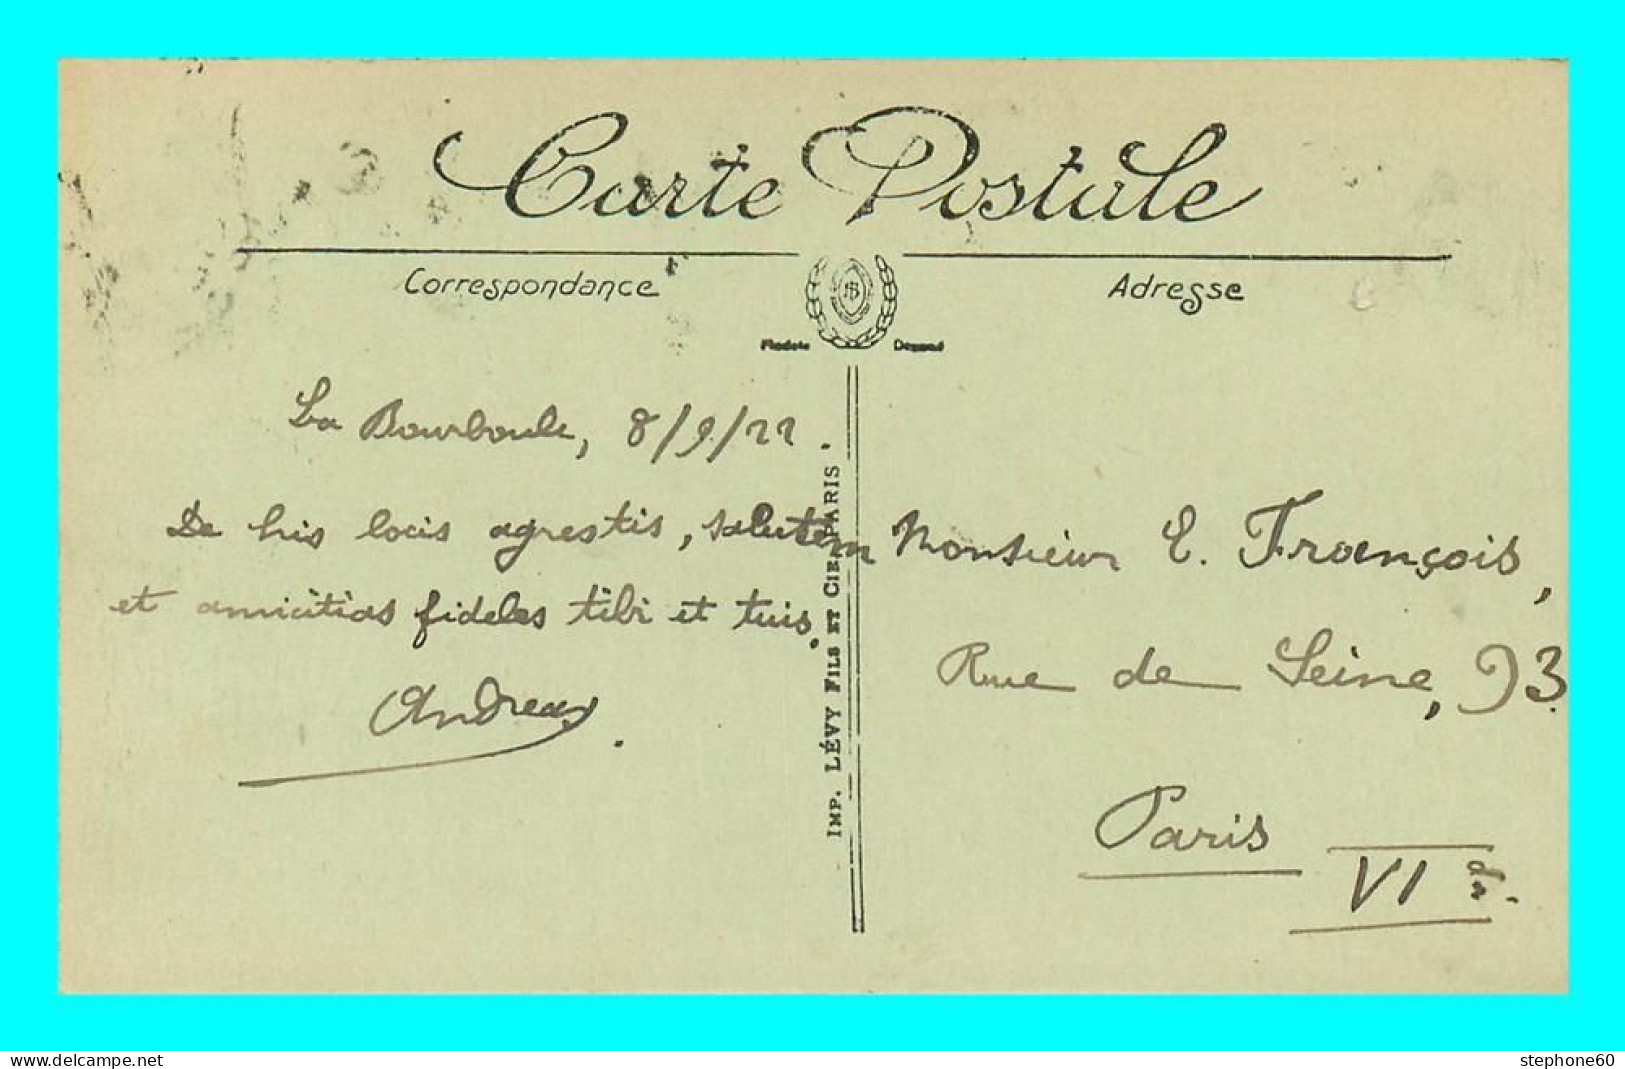 Carte Postale
Correspondance
Adresse
La Bourboule, 8/9/22.
De his locis agrestis, salutem
et amicitias fideles tibi et tuis.
Andreas
IMP. LÉVY FILS ET CIE PARIS
Monsieur E. François,
Rue de Seine, 93.
Paris
VI
delcampe.net
stephone60